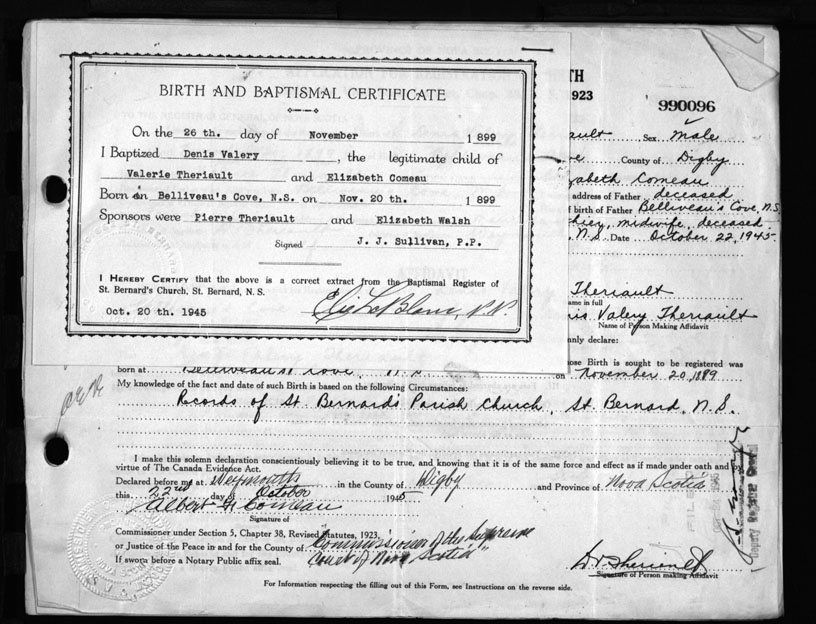 BIRTH AND BAPTISMAL CERTIFICATE
On the 26 th. day of November 1899
I Baptized Denis Valery, the legitimate child of
Valerie Theriault and Elizabeth Comeau
Born in Belliveau's Cove, N.S. on Nov. 20 th. 1899
Sponsors were Pierre Theriault and Elizabeth Walsh
Signed J. J. Sullivan, P.P.
I HEREBY CERTIFY that the above is a correct extract from the Baptismal Register of
St. Bernard's Church, St. Bernard, N. S.
Oct. 20 th. 1945
TH
1923
990096
ault Sex Male
County of Digby
zabeth Comeau
address of Father deceased
of birth of Father Belliveau's Cove, N.S.
midwife, deceased.
N.S. Date October 22, 1945.
Theriault
ame in full
nis Valery Theriault
Name of Person Making Affidavit
nly declare:
hose Birth is sought to be registered was
born at Belliveau's Cove, N.S. on November 20, 1899
My knowledge of the fact and date of such Birth is based on the following Circumstances:
Records of St Bernard's Parish Church, St. Bernard, N.S.
I make this solemn declaration conscientiously believing it to be true, and knowing that it is of the same force and effect as if made under oath and by
virtue of The Canada Evidence Act.
Declared before me at Weymouth in the County of Digby and Province of Nova Scotia
this 22nd day of October 1945
Albert H Comeau
Signature of
Commissioner under Section 5, Chapter 38, Revised Statutes, 1923,
or Justice of the Peace in and for the County of
"Commissioner of the Supreme
Court of Nova Scotia"
If sworn before a Notary Public affix seal.
Signature of Person making Affidavit
For Information respecting the filling out of this Form, see Instructions on the reverse side.